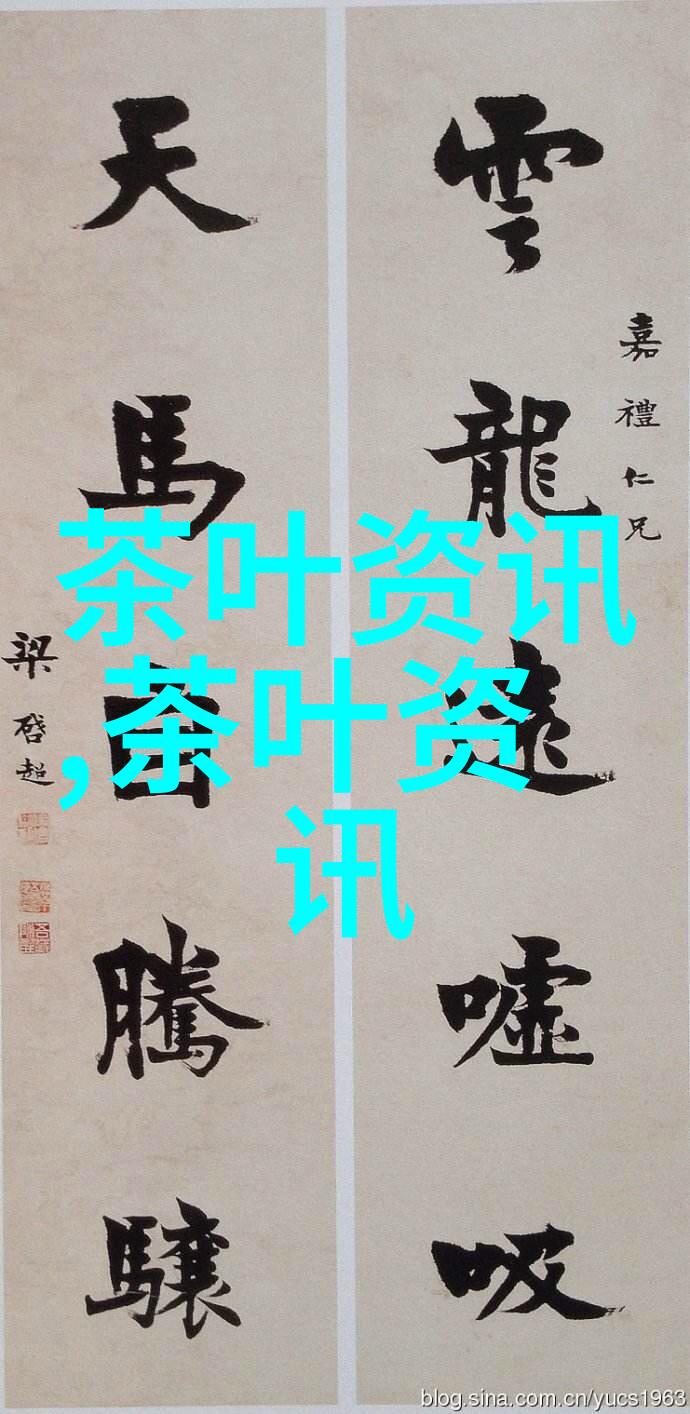 雲龍遠噓吸
嘉禮仁兄
天馬騰驤
梁啓超
茶叶资讯
,茶叶资
讯
blog.sina.com.cn/yucs1963